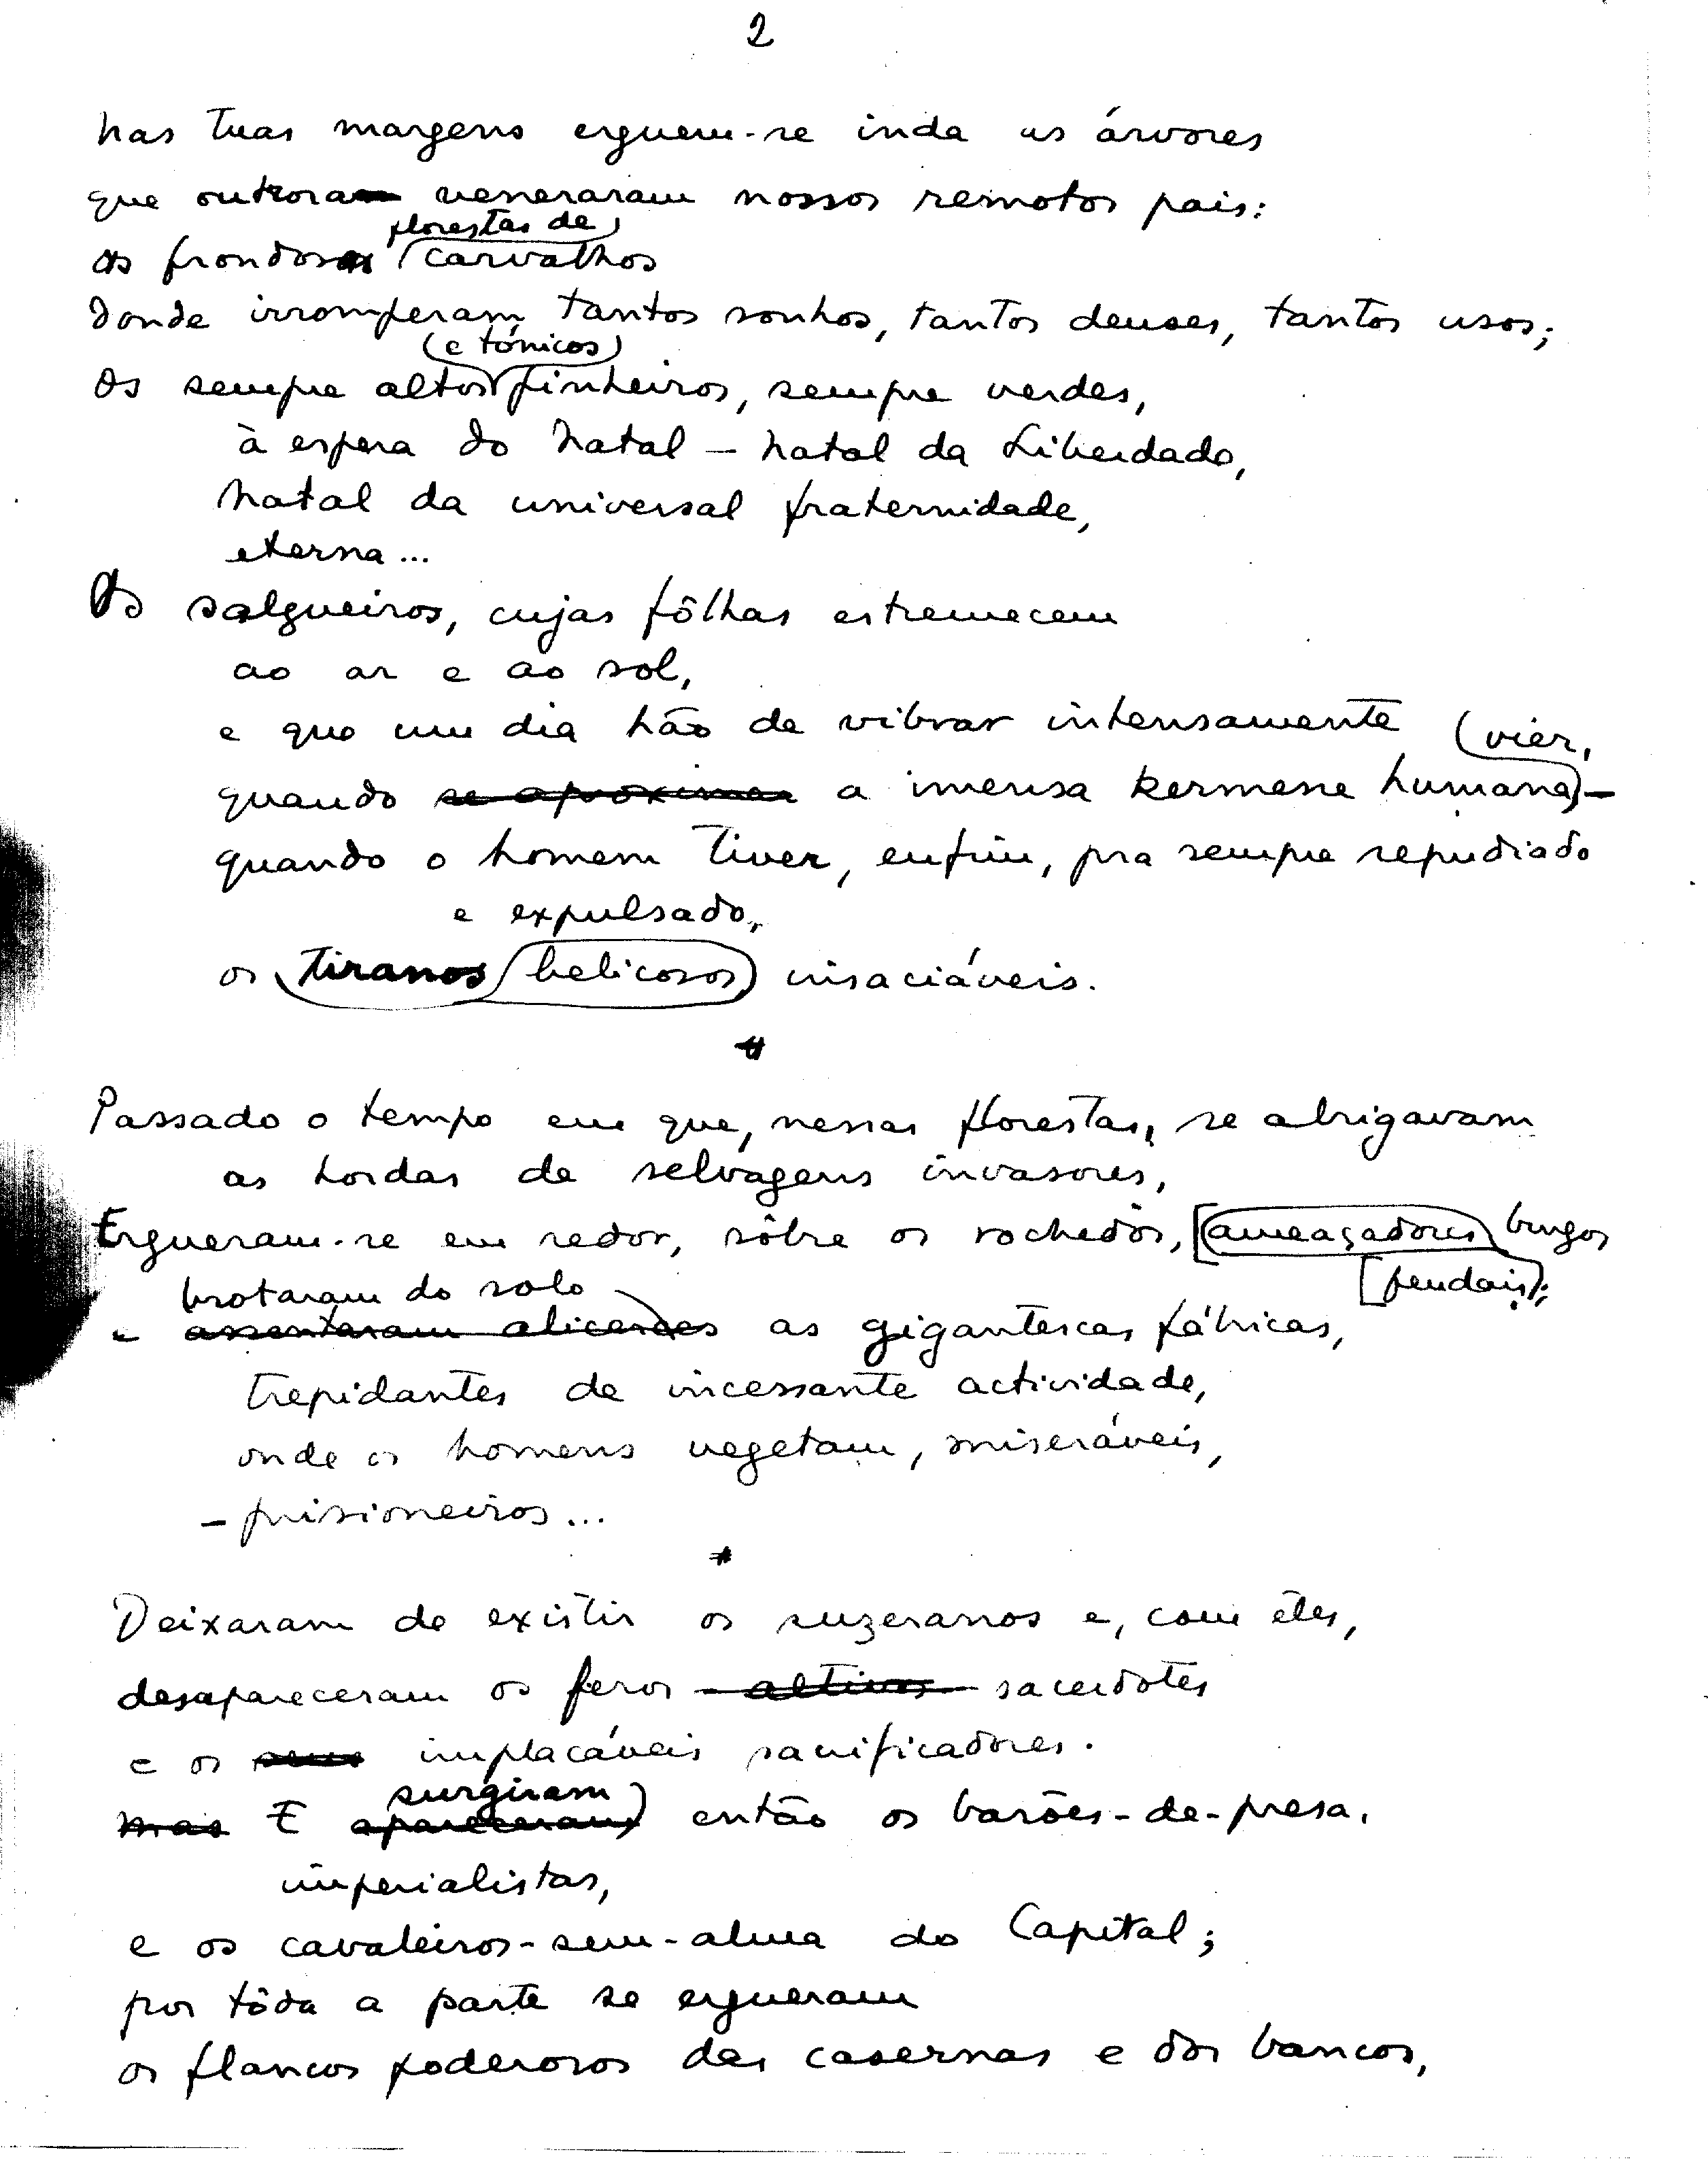 2
Nas tuas margens erguem-se inda as árvores
que outrora veneraram nossos remotos pais:
florestas de
as frondosas carvalhos
donde irromperam tantos sonhos, tantos deuses, tantos usos;
(e tónicos)
Os sempre altos pinheiros, sempre verdes,
à espera do Natal – Natal da Liberdade,
Natal da universal fraternidade,
eterna...
Os salgueiros, cujas fôlhas estremecem
ao ar e ao sol,
e que um dia hão de vibrar intensamente
(vier,
quando se aproximar a imensa kermesse humana) –
quando o homem tiver, enfim, pra sempre repudiado
e expulsado,
os tiranos belicosos insaciáveis.
*
Passado o tempo em que, nessas florestas, se abrigavam
as hordas de selvagens invasores,
Ergueram-se em redor, sôbre os rochedos, [ameaçadores burgos
[feudais);
brotaram do solo
e assentaram alicerces as gigantescas fábricas,
trepidantes de incessante actividade,
onde os homens vegetam, miseráveis,
– prisioneiros...
*
Deixaram de existir os suzeranos e, com êles,
desapareceram os feros altivos sacerdotes
e os seus implacáveis sacrificadores.
surgiram)
mas E apareceram então os barões-de-presa,
imperialistas,
e os cavaleiros-sem-alma do Capital;
por tôda a parte se ergueram
os flancos poderosos das casernas e dos bancos,